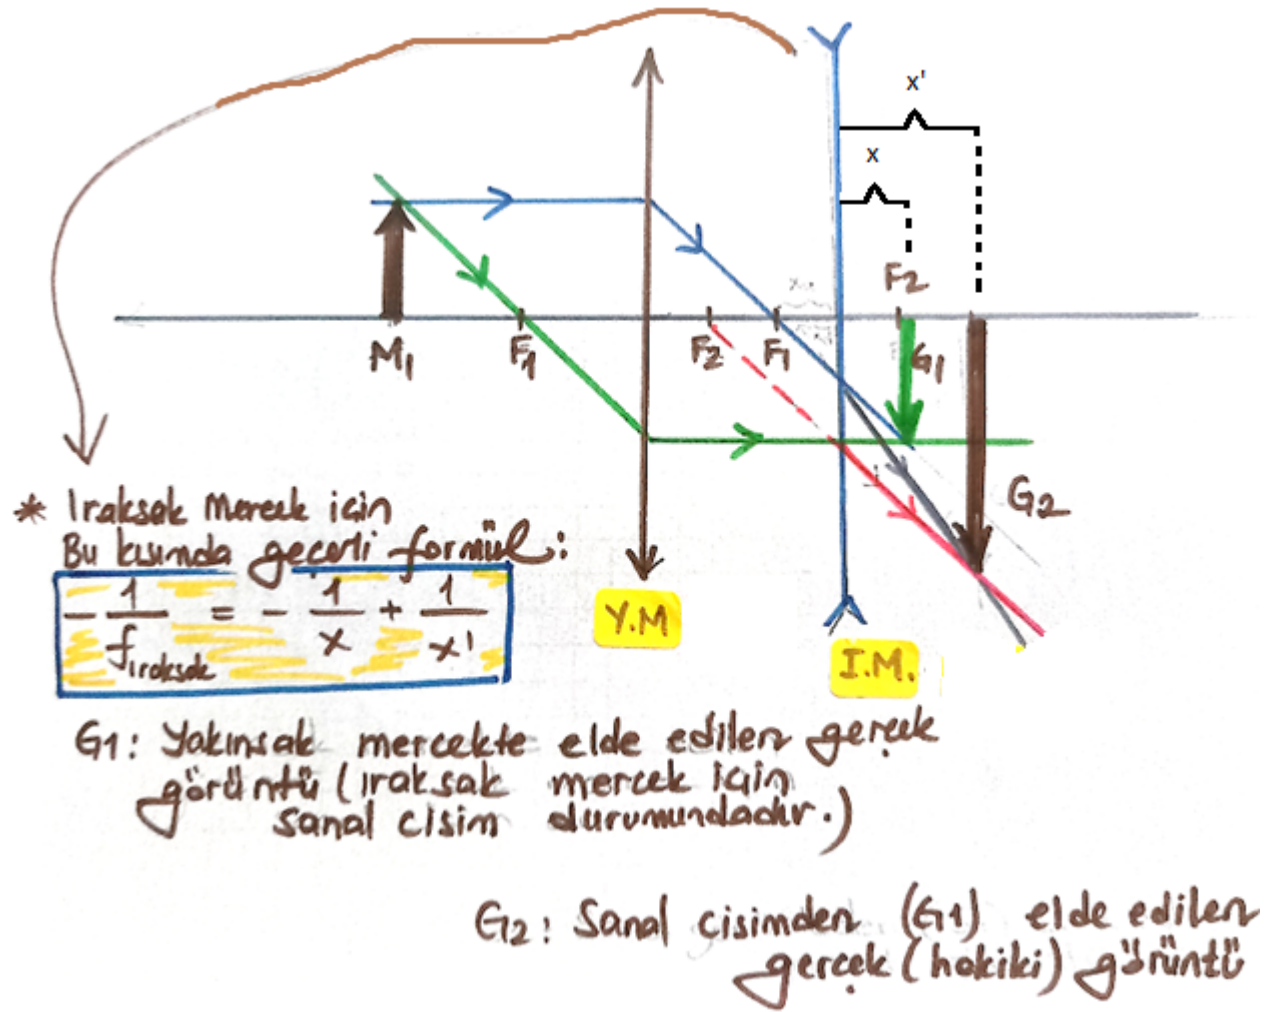 x'
x
F2
M1
F1
F2
F1
G1
G2
* Iraksak Mercek için
Bu kısımda geçerli formül:
- 1/f ıraksak = - 1/x + 1/x'
Y.M
I.M.
G1: Yakınsak mercekte elde edilen gerçek
görüntü (ıraksak mercek için
sanal cisim durumundadır.)
G2: Sanal cisimden (G1) elde edilen
gerçek (hakiki) görüntü